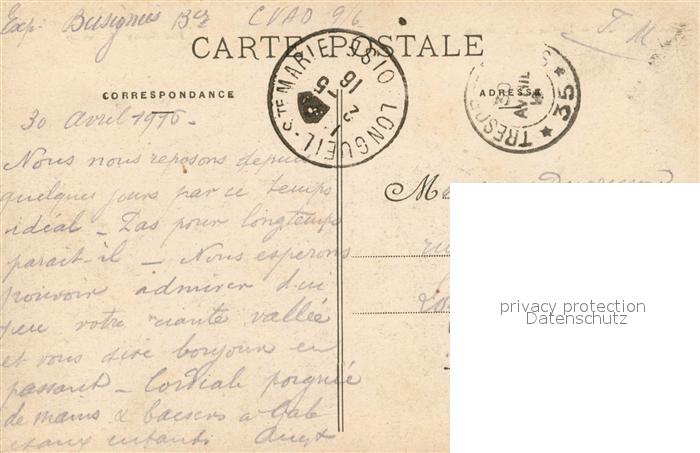 Exp. Busignies CVAD 9/6 F. M.
CARTE POSTALE
CORRESPONDANCE
ADRESSE
LONGUEIL-STE MARIE OISE
16 5
2
TRESOR 
* 35 *
AVRIL
30 Avril 1916.
Nous nous reposons depuis
quelques jours par ce temps
idéal - Pas pour longtemps
parait-il - Nous esperons
pouvoir admirer d'ici
peu votre riante vallée
et vous dire bonjour en
passant - Cordiale poignée
de mains & baisers à Gab
et aux enfants Aug
M
privacy protection
Datenschutz